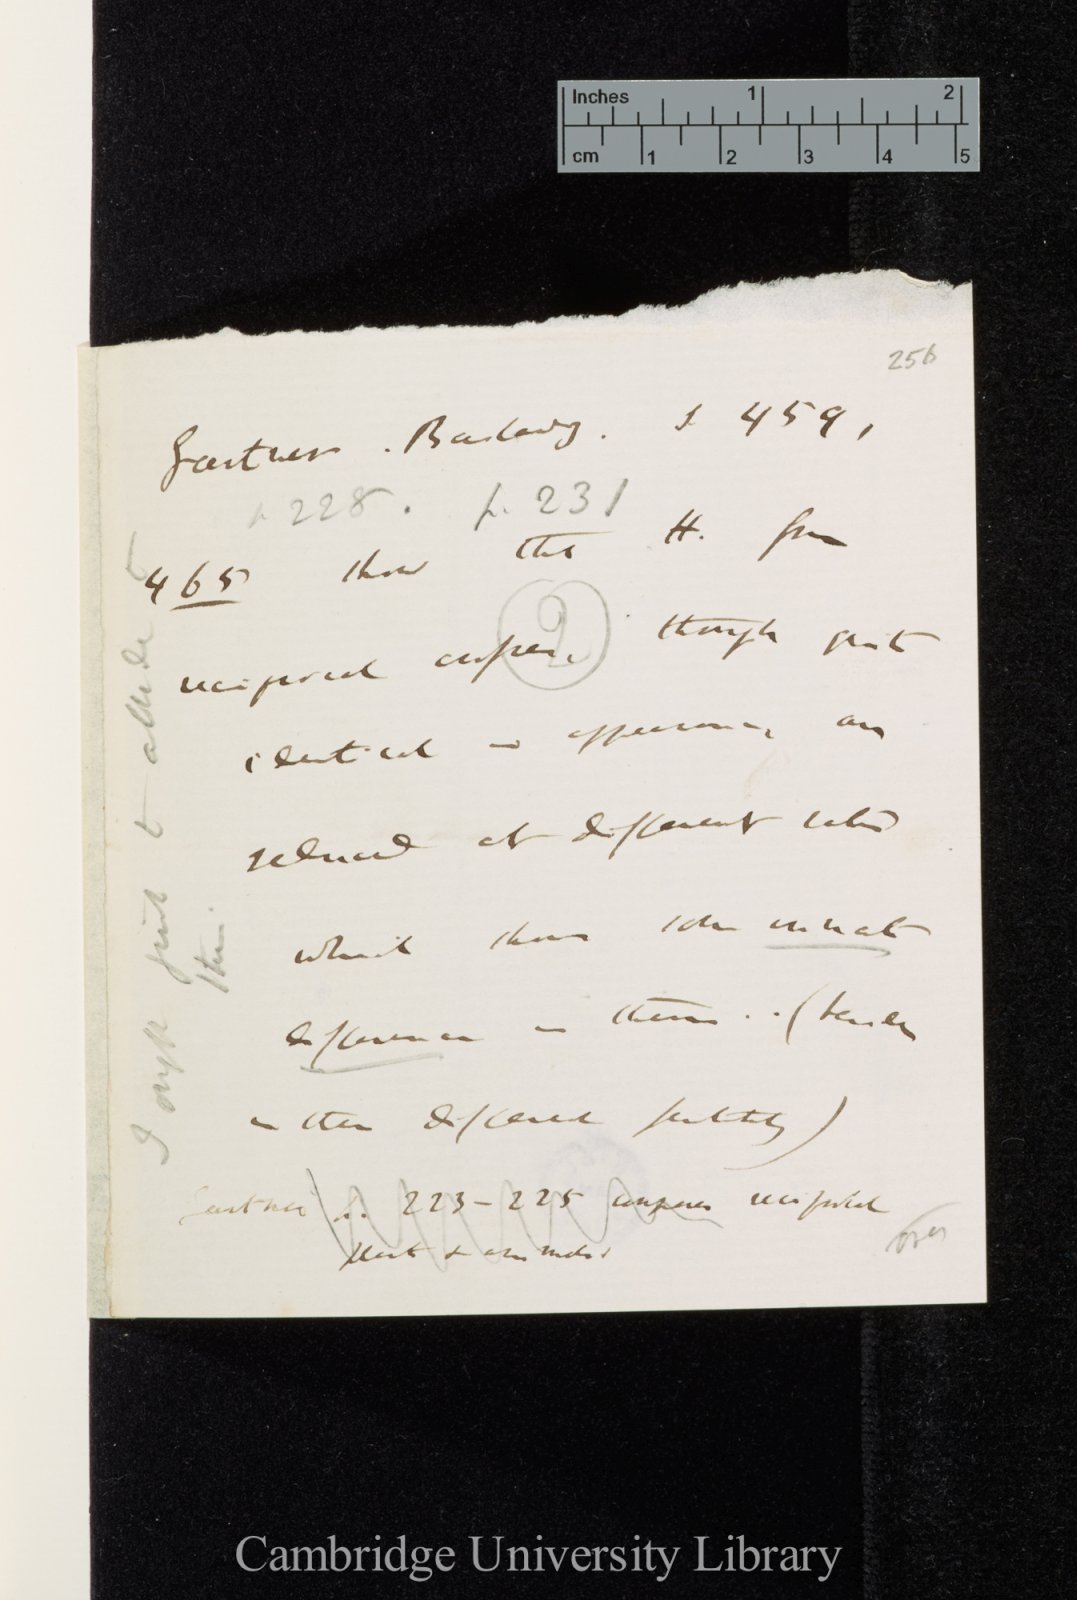 Inches 1 2
cm 1 2 3 4 5
256
Gartner. Bastardz. p 459,
p 228. p. 231
465 show that H. from
(2)
reciprocal crosses, though quite
identical in appearance, are
reduced at different rates
which shows some innate
difference in them.. (besides
in their different fertility)
Gartner p. 223–225 compares reciprocal
over
I ought first to allude to
this.
Cambridge University Library